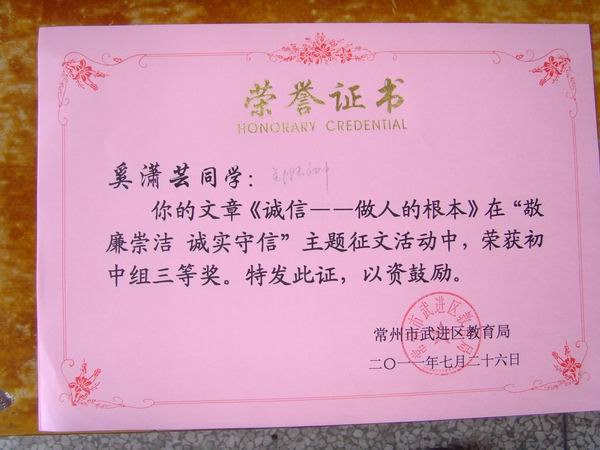 荣誉证书
HONORARY CREDENTIAL
奚潇芸同学：
你的文章《诚信——做人的根本》在“敬
廉崇洁 诚实守信”主题征文活动中，荣获初
中组三等奖。特发此证，以资鼓励。
常州市武进区教育局
二〇一一年七月二十六日
常州市武进区教育局